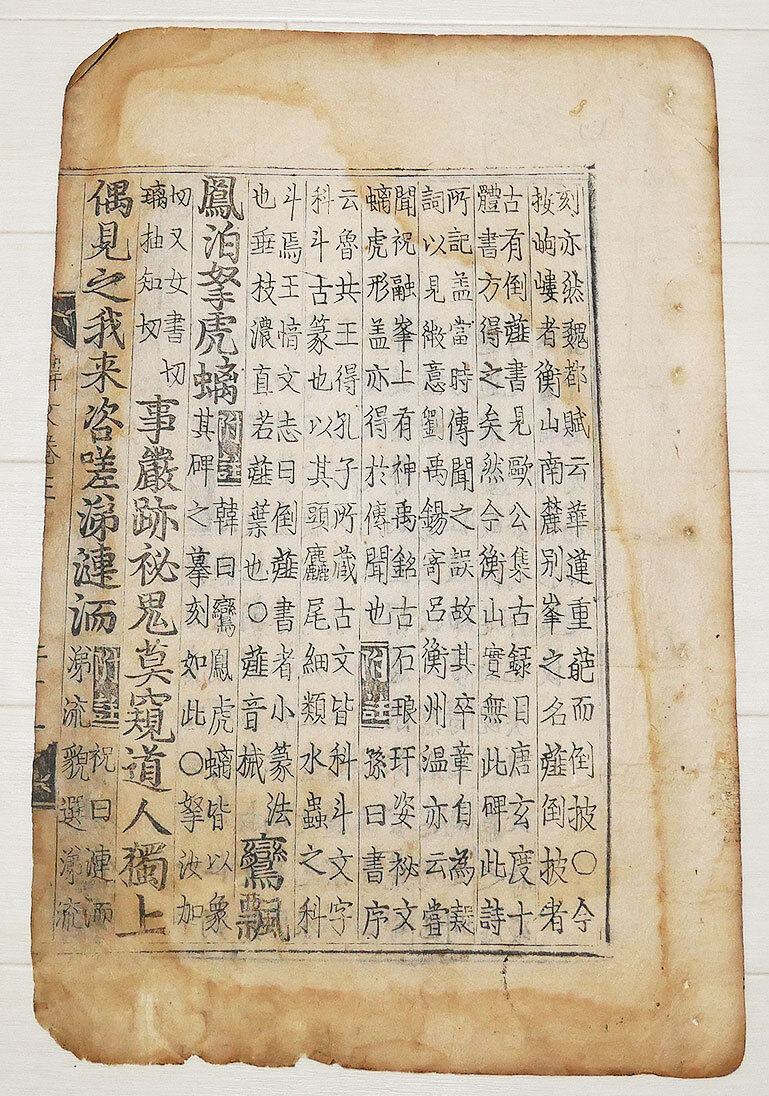 刻亦然魏都賦云華蓮重葩而倒披○今
按岣嶁者衡山南麓别峯之名薤倒披者
古有倒薤書見歐公集古録曰唐玄度十
體書方得之矣然今衡山實無此碑此詩
所記盖當時傳聞之誤故其卒章自為疑
詞以見微意劉禹錫寄呂衡州温亦云甞
聞祝融峯上有神禹銘古石琅玕姿祕文
螭虎形盖亦得於傳聞也附註孫曰書序
云魯共王得孔子所蔵古文皆科斗文字
科斗古篆也以其頭麤尾細類水蟲之科
斗焉王愔文志曰倒薤書者小篆法
也垂枝濃直若薤葉也○薤音械
鸞飄
鳳泊拏虎螭附註
韓曰鸞鳳虎螭皆以象
其碑之摹刻如此○拏汝加
切又女書切
璃抽知切
事嚴跡祕鬼莫窺道人獨上
偶見之我来咨嗟涕漣洏附註
祝曰漣洏
涕流貌選涕流